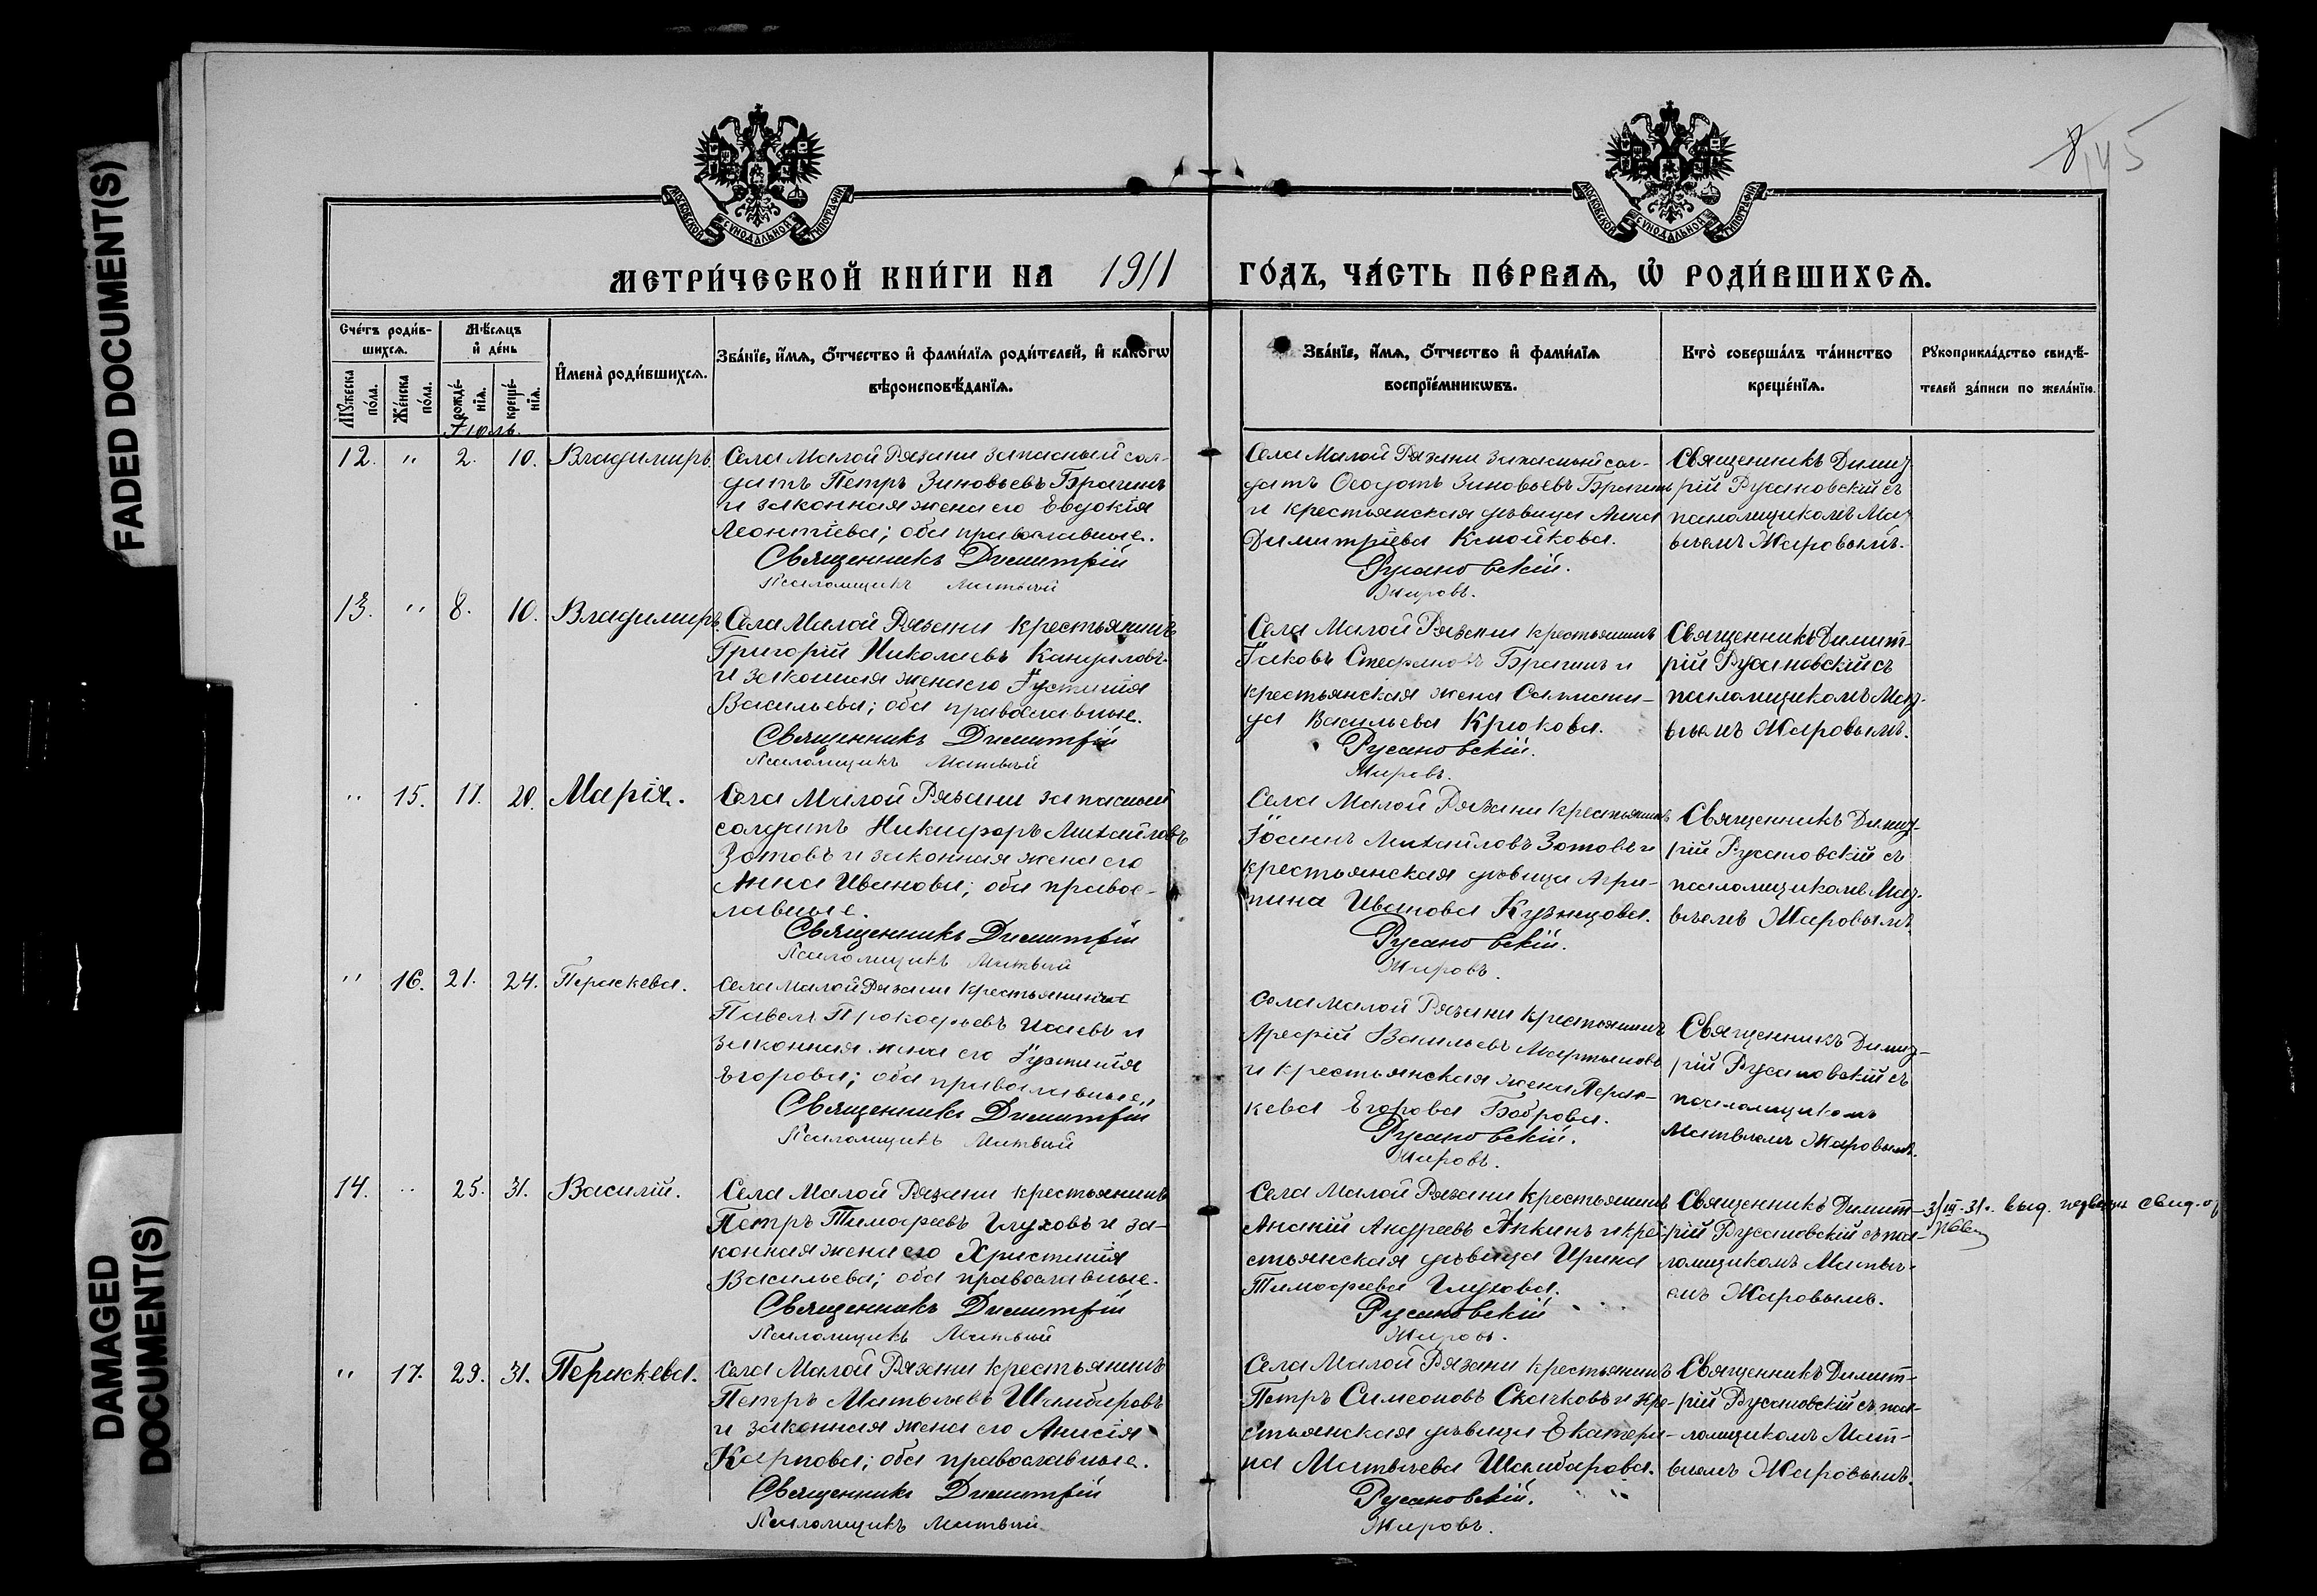 FADED DOCUMENT(S)
DAMAGED
DOCUMENT(S)
145
МОСКОВСКОЙ СѴНОДАЛЬНОЙ ТИПОГРАФІИ
МОСКОВСКОЙ СѴНОДАЛЬНОЙ ТИПОГРАФІИ
МЕТРИ́ЧЕСКОЙ КНИ́ГИ НА 1911 ГО́ДЪ, ЧА́СТЬ ПЕ́РВАѦ, Ѡ РОДИ́ВШИХСѦ.
Сче́тъ роди́в-
шихсѧ.
Мꙋ́жеска
по́ла.
Же́нска
по́ла.
Мѣ́сѧцъ
и҆ де́нь
рожде́-
нїѧ.
креще́-
нїѧ.
И҆мена̀ роди́вшихсѧ.
Зва́нїе, и҆́мѧ, ѻ҆́тчество и҆ фами́лїѧ роди́телей, и҆ како́гѡ
вѣроисповѣ́данїѧ.
Зва́нїе, и҆́мѧ, ѻ҆́тчество и҆ фами́лїѧ
воспрїе́мникѡвъ.
Кто̀ соверша́лъ та́инство
креще́нїѧ.
Рꙋкоприкла́дство свидѣ́-
телей за́писи по жела́нїю.
Іюль.
12. " 2. 10. Владимиръ.
Села Малой Рязани запасный сол-
датъ Петръ Зиновьевъ Брагинъ
и законная жена его Евдокія
Леонтіева; оба православные.
Священникъ Димитрій
Псаломщикъ Матвѣй
Села Малой Рязани запасный сол-
датъ Ѳеодотъ Зиновьевъ Брагинъ
и крестьянская дѣвица Анна
Димитріева
Русановскій.
Жировъ.
Священникъ Димит-
рій Русановскій съ
псаломщикомъ Мат-
вѣемъ Жировымъ.
13. " 8. 10. Владимиръ.
Села Малой Рязани крестьянинъ
Григорій Николаевъ Кандаловъ
и законная жена его Іустинія
Васильева; оба православные.
Священникъ Димитрій
Псаломщикъ Матвѣй
Села Малой Рязани крестьянинъ
Іаковъ Стефановъ Брагинъ и
крестьянская жена
Васильева Крюкова.
Русановскій.
Жировъ.
Священникъ Димит-
рій Русановскій съ
псаломщикомъ Мат-
вѣемъ Жировымъ.
" 15. 11. 20. Марія.
Села Малой Рязани запасный
солдатъ Никифоръ Михайловъ
Зотовъ и законная жена его
Анна Иванова; оба правос-
лавные.
Священникъ Димитрій
Псаломщикъ Матвѣй
Села Малой Рязани крестьянинъ
Іоаннъ Михайловъ Зотовъ и
крестьянская дѣвица Агри-
пина Иванова Кузнецова.
Русановскій.
Жировъ.
Священникъ Димит-
рій Русановскій съ
псаломщикомъ Мат-
вѣемъ Жировымъ
" 16. 21. 24. Параскева.
Села Малой Рязани крестьянинъ
Павелъ Прокофьевъ Исаевъ и
законная жена его Іустинія
Егорова; оба православные.
Священникъ Димитрій
Псаломщикъ Матвѣй
Села Малой Рязани крестьянинъ
Арефій Васильевъ Мартыновъ
и крестьянская жена Парас-
кева Егорова Боброва.
Русановскій.
Жировъ.
Священникъ Димит-
рій Русановскій съ
псаломщикомъ
Матвѣемъ Жировымъ.
14. " 25. 31. Василій.
Села Малой Рязани крестьянинъ
Петръ Тимофеевъ Глуховъ и за-
конная жена его Христинія
Васильева; оба православные.
Священникъ Димитрій
Псаломщикъ Матвѣй
Села Малой Рязани крестьянинъ
Ананій Андреевъ Япкинъ и кре-
стьянская дѣвица Ирина
Тимофеева Глухова.
Русановскій
Жировъ.
Священникъ Димит-
рій Русановскій съ пса-
ломщикомъ Матвѣ-
емъ Жировымъ.
31. выд. свид.
" 17. 29. 31. Параскева.
Села Малой Рязани крестьянинъ
Петръ Матвѣевъ Шамбаровъ
и законная жена его Анисія
Карпова; оба православные.
Священникъ Димитрій
Псаломщикъ Матвѣй
Села Малой Рязани крестьянинъ
Петръ Симеоновъ Скачковъ и кре-
стьянская дѣвица Екатери-
на Матвѣева Шамбарова.
Русановскій.
Жировъ.
Священникъ Димит-
рій Русановскій съ пса-
ломщикомъ Мат-
вѣемъ Жировымъ.